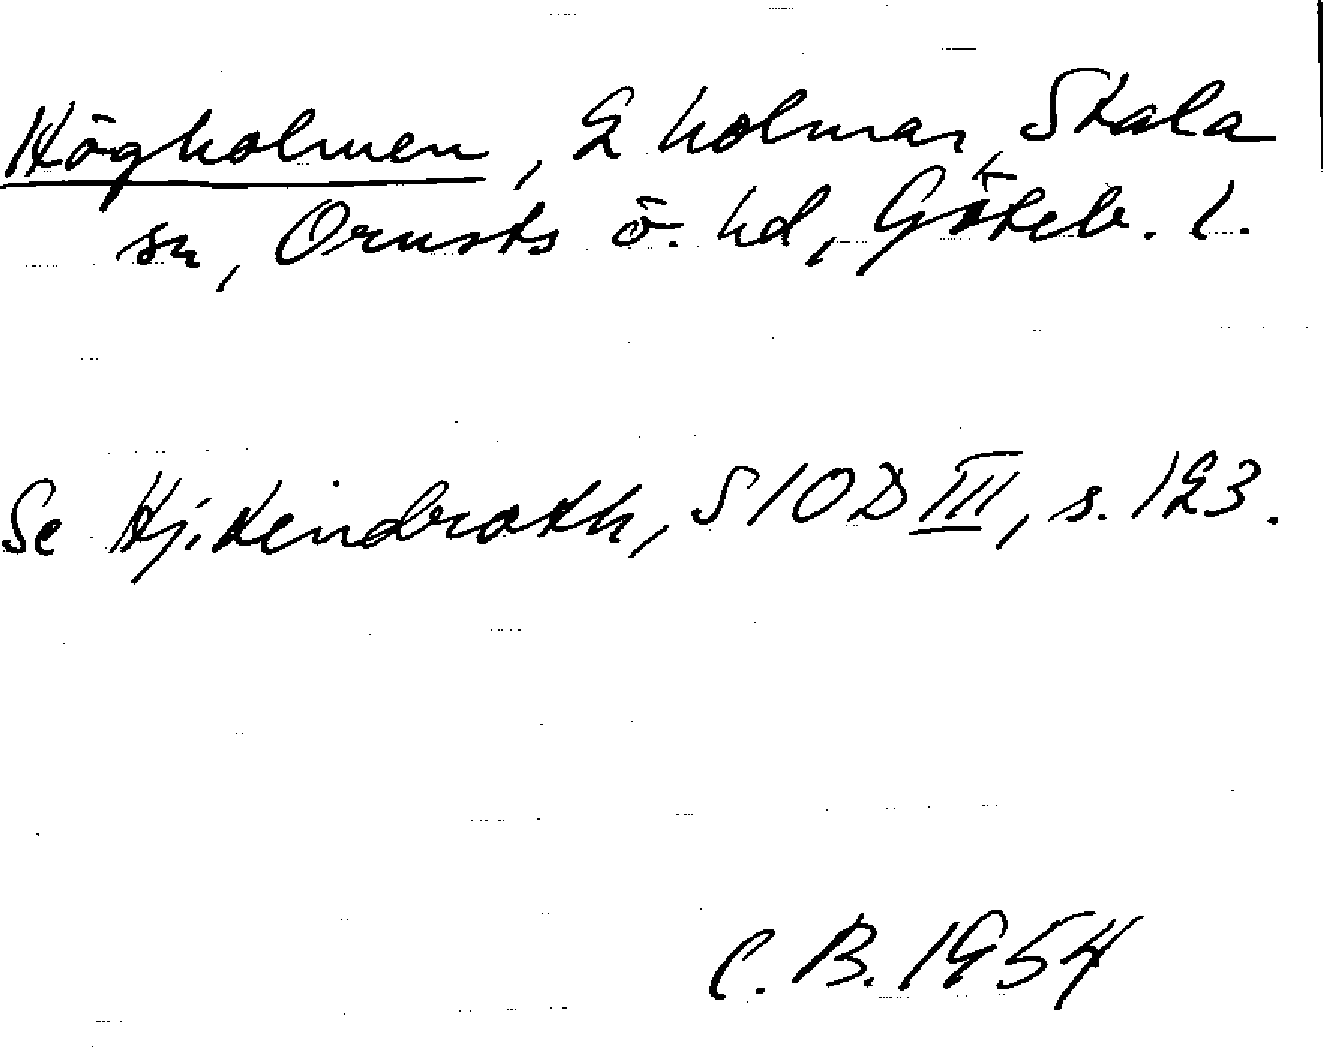 Högholmen, 2 holmar, Skala
sn, Orusts ö. hd, Göteb. l.
Se Hj. Lindroth, SIOD III, s. 123.
C. B. 1954